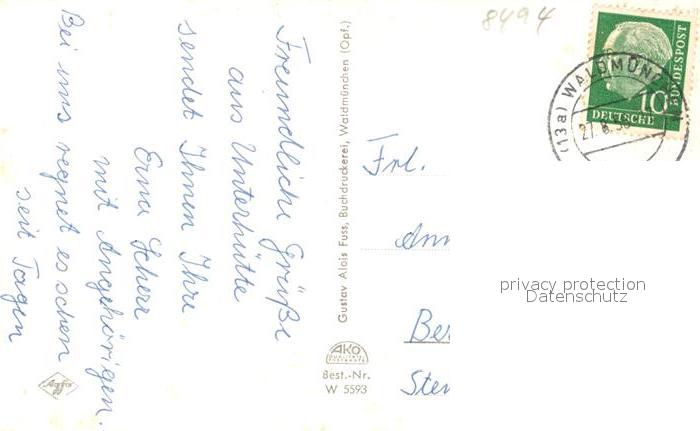 8494
Freundliche Grüße
aus Unterhütte
sendet Ihnen Ihre
Erna Scherr
mit Angehörigen.
Bei uns regnet es schon
seit Tagen
Gustav Alois Fuss, Buchdruckerei, Waldmünchen (Opf.)
AKO
Best.-Nr.
W 5593
Agfa
10
DEUTSCHE
BUNDESPOST
(13a) WALDMÜNC
27.
Frl.
Ann
Ber
Ster
privacy protection
Datenschutz